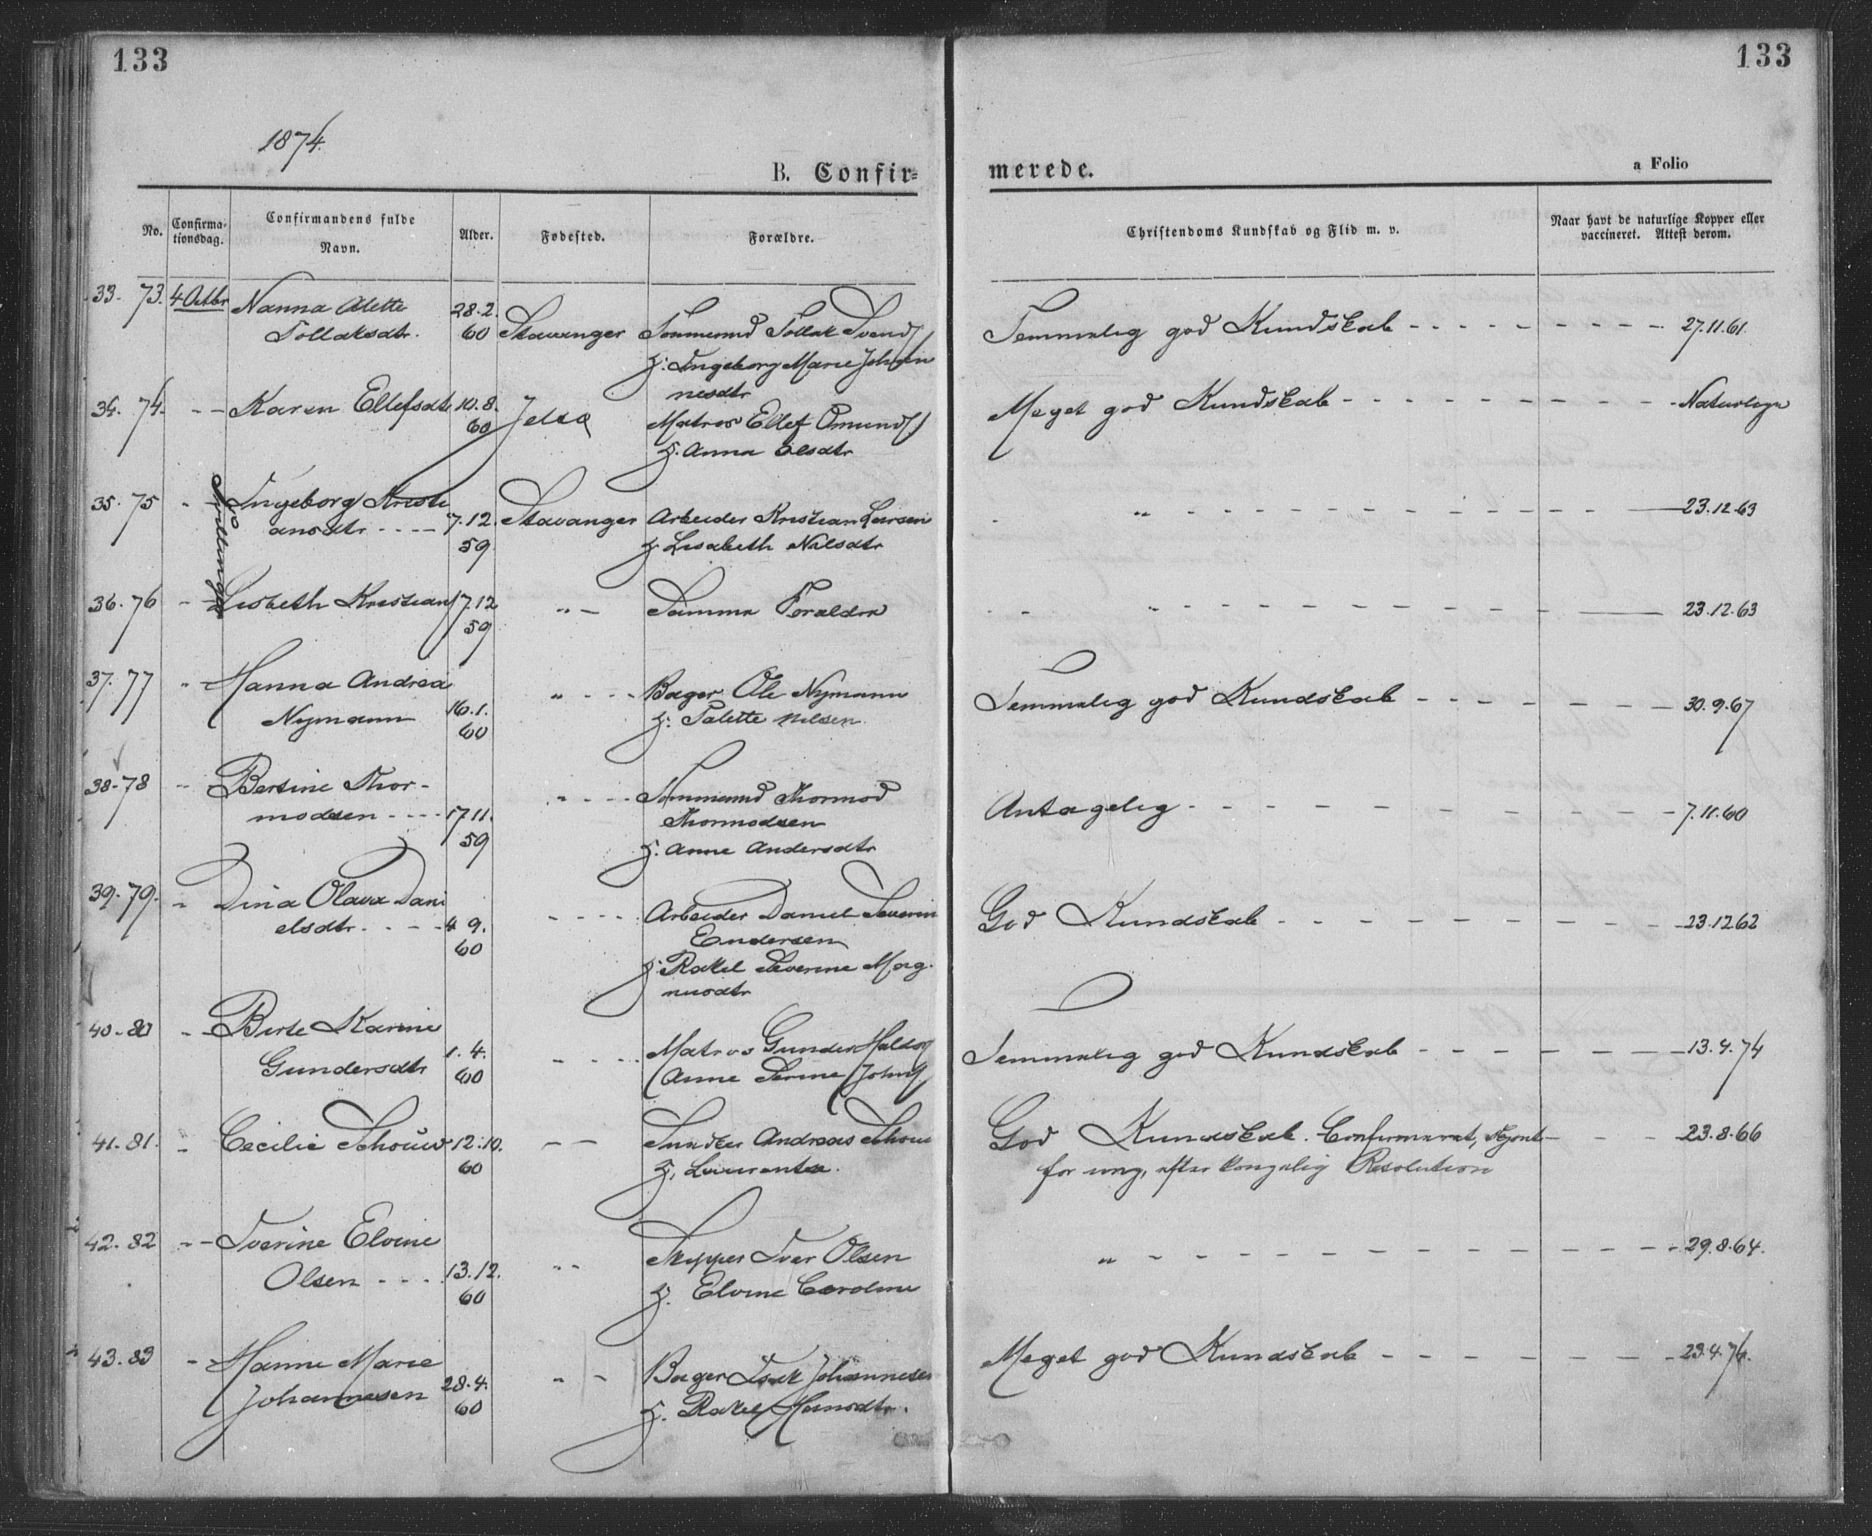 133
133
1874.
B. Confir-
merede.
a Folio
No.
Confirma-
tionsdag.
Confirmandens fulde
Navn.
Alder.
Fødested.
Forældre.
Christendoms Kundskab og Flid m. v.
Naar havt de naturlige Kopper eller
vaccineret. Attest derom.
33. 73. 4 Octbr Nanna Alette 28.2.
Tollaksdtr. 60 Stavanger Tømmermd Tollak Svends
Temmelig god Kundskab - - - - 27.11.61.
H: Ingeborg Marie Johan
nesdtr
34. 74. - - Karen Ellefsdtr 10.8.
60 Jelsa Matros Ellef Omunds
H. Anna Olsdtr
Meget god Kundskab - - - - Naturlige
35. 75 " Tvillinger Ingeborg Kristi
ansdtr - - - 7.12. Stavanger Arbeider Kristian Larsen
59 H. Lisabeth Nilsdtr
" - - - - 23.12.63
36. 76 - Lisbeth Kristians 7.12 " - Samme Forældre
59
" - - - - 23.12.63
37. 77 " Hanna Andrea
Nymann 16.1.
60
" - - - Bager Ole Nymann
H. Talette Nilsen
Temmelig god Kundskab - - - - 30.9.67
38-78 - Bertine Thor-
modsen - - - 17.11.
59
" - - - Tømmermd Thormod
Thormodsen
H. Anne Andersdtr
Antagelig - - - - 7.11.60
39. 79. " Dina Olava Dani
elsdtr - - - 4 9.
60
- - - - Arbeider Daniel Severin
Endersen
H. Rakel Severine Mag-
nusdtr
God Kundskab - - - - 23.12.62
40-80 - - Berte Karine
Gundersdtr 1.4.
60
- - - - Matros Gunder
Anne Serine Johns
Temmelig god Kundskab - - - - 13.4.74
41. 81. " Cecilie Schouw 12.10.
60
- - Andreas Schouw
H. Laurentse.
God Kundskab. Confirmeret, skjønt - - - 23.8.66
for ung, efter kongelig Resolution
42. 82 - - Iverine Elvine
Olsen - - - 13.12.
60
" " Skipper Iver Olsen
H. Elvine Caroline
" - - - - 29.8.64.
43. 83 - Hanne Marie
Johannesen 28.4.
60
" - Bager Isak Johannesen
H. Rakel Hansdtr.
Meget god Kundskab - - - - 23.4.74.